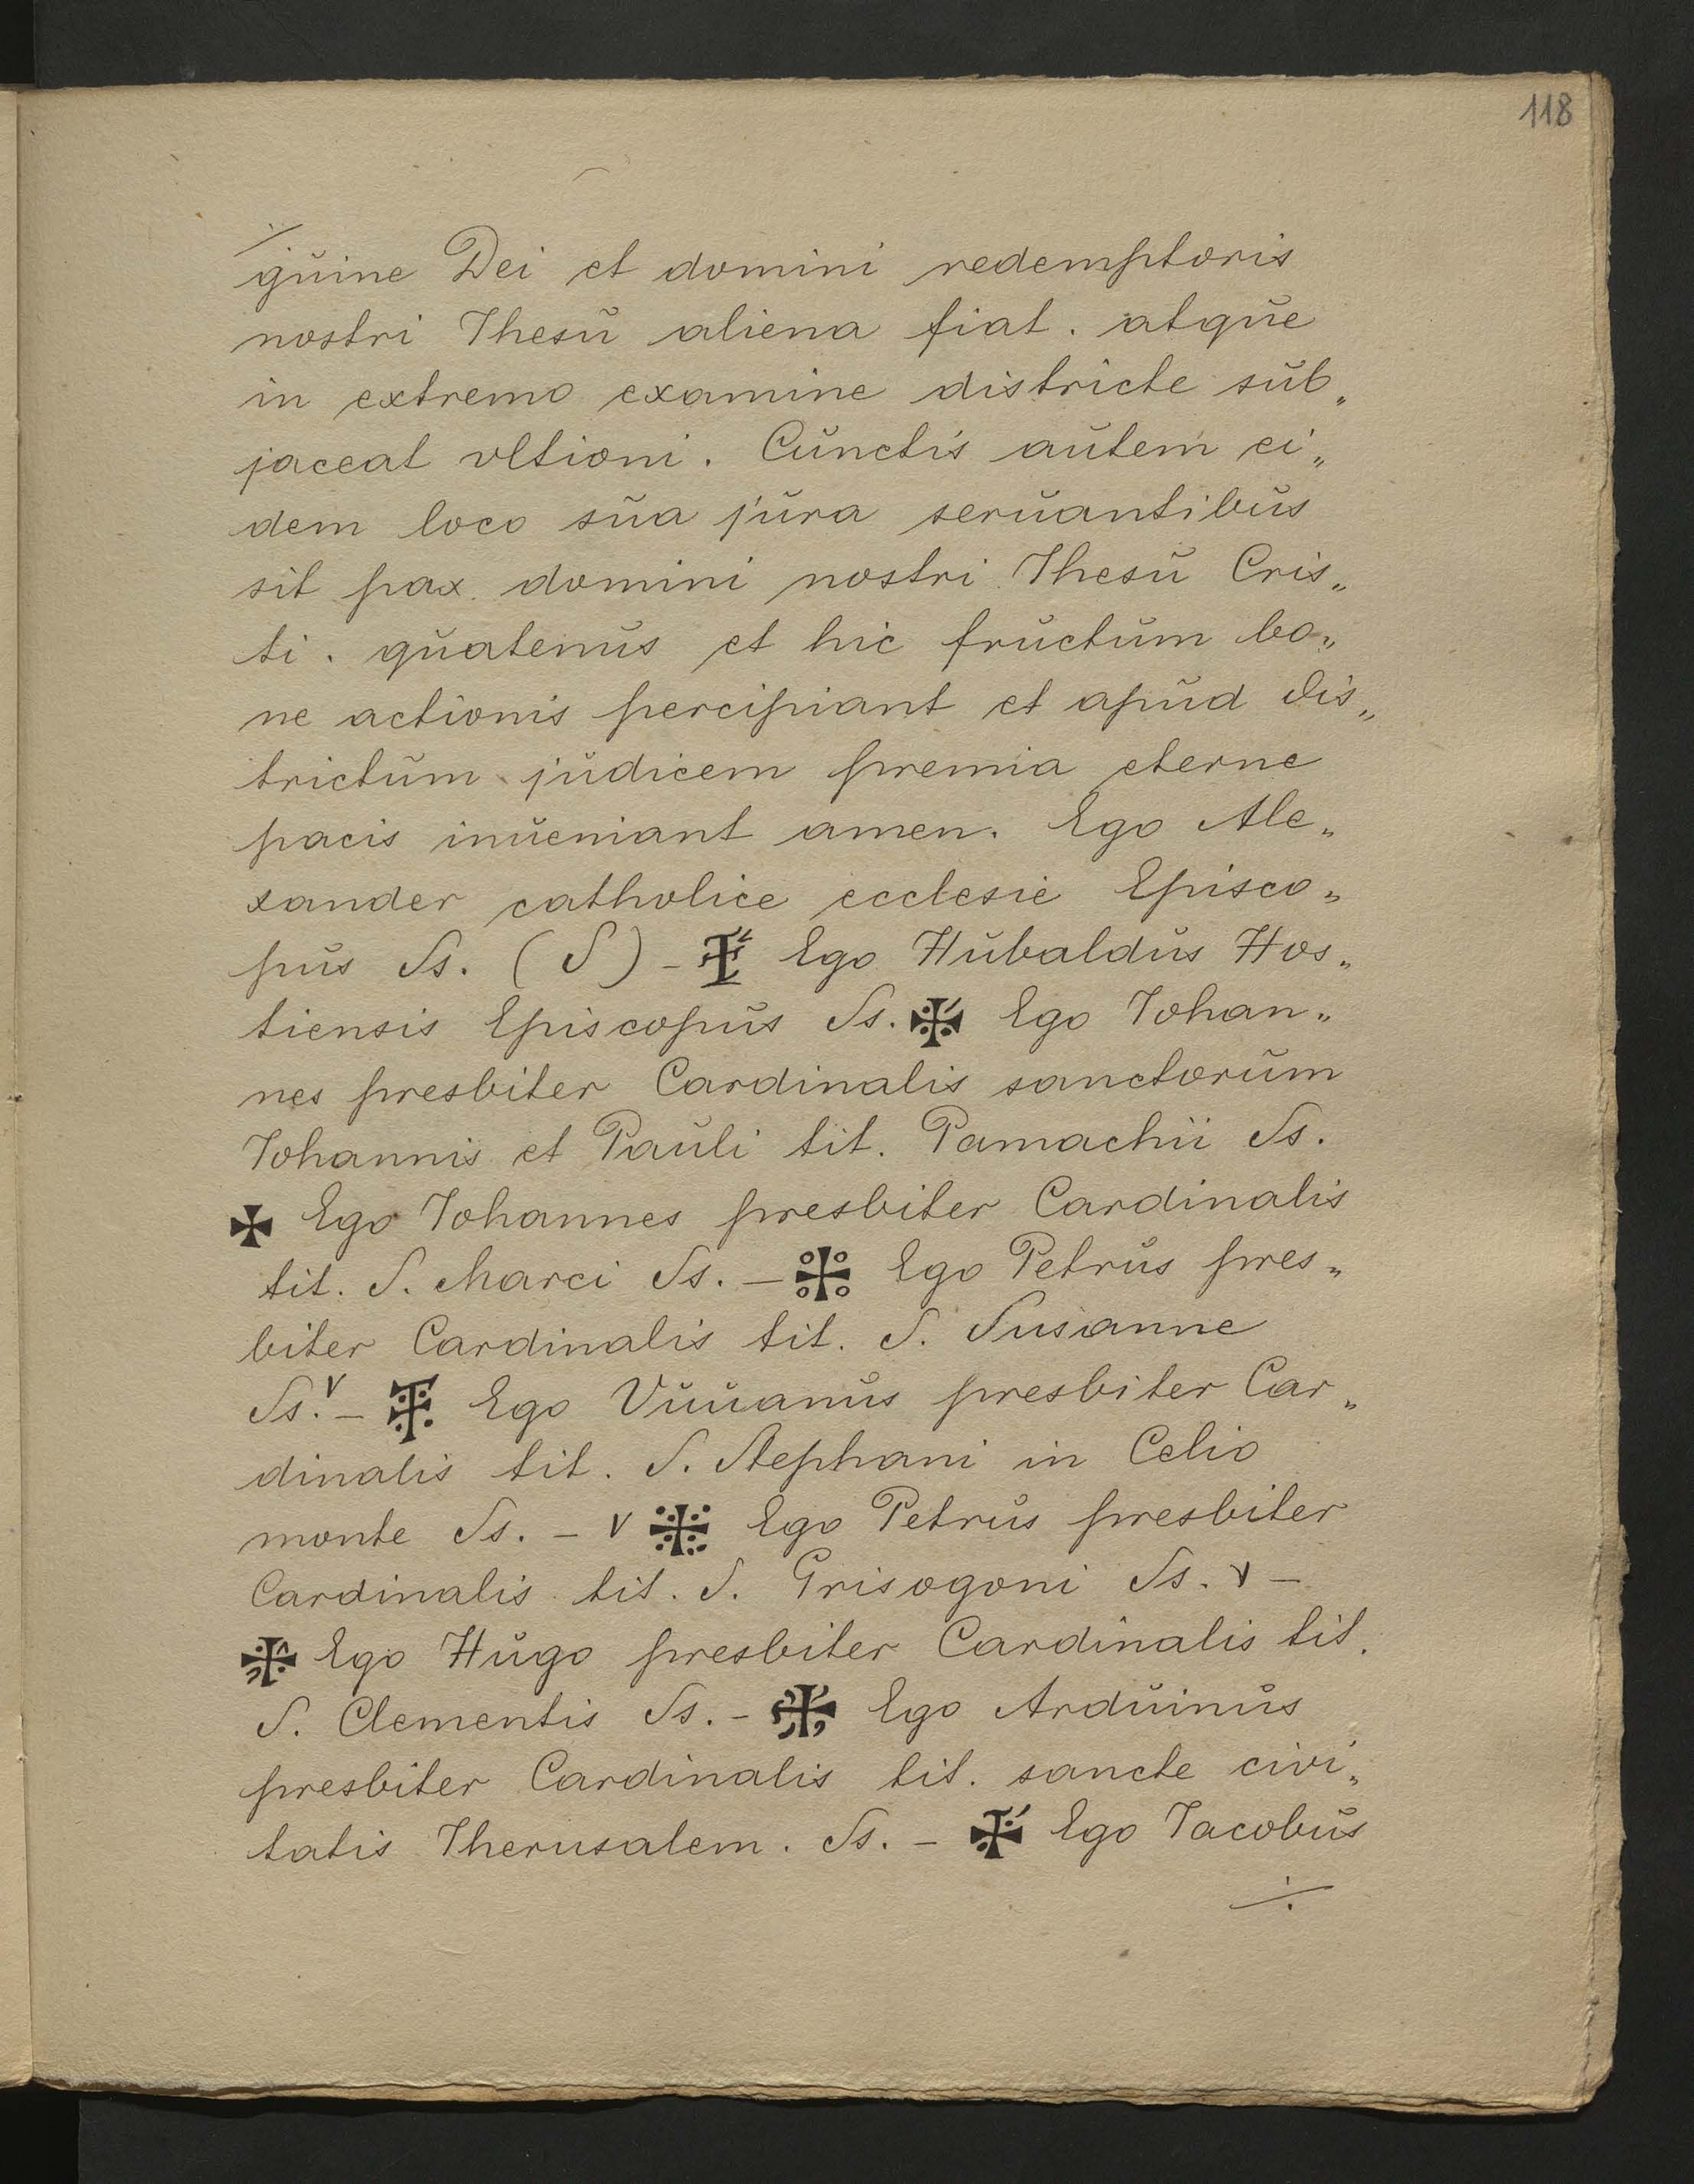 118
guine Dei et domini redemptoris
nostri Ihesu aliena fiat. atque
in extremo examine districte sub„
jaceat vltioni. Cunctis autem ei„
dem loco sua jura seruantibus
sit pax domini nostri Ihesu Cris„
ti. quatenus et hic fructum bo„
ne actionis percipiant et apud dis„
trictum judicem premia eterne
pacis inueniant amen. Ego Ale„
xander catholice ecclesie Episco„
pus Ss. (S) - ✠ Ego Hubaldus Hos„
tiensis Episcopus Ss. ✠ Ego Iohan„
nes presbiter Cardinalis sanctorum
Iohannis et Pauli tit. Pamachii Ss.
✠ Ego Iohannes presbiter Cardinalis
tit. S. Marci Ss. - ✠ Ego Petrus pres„
biter Cardinalis tit. S. Susanne
Ss. v - ✠ Ego Vuuanus presbiter Car„
dinalis tit. S. Stephani in Celio
monte Ss. - v ✠ Ego Petrus presbiter
Cardinalis tit. S. Grisogoni Ss. v -
✠ Ego Hugo presbiter Cardinalis tit.
S. Clementis Ss. - ✠ Ego Arduinus
presbiter Cardinalis tit. sancte civi„
tatis Iherusalem. Ss. - ✠ Ego Iacobus
÷